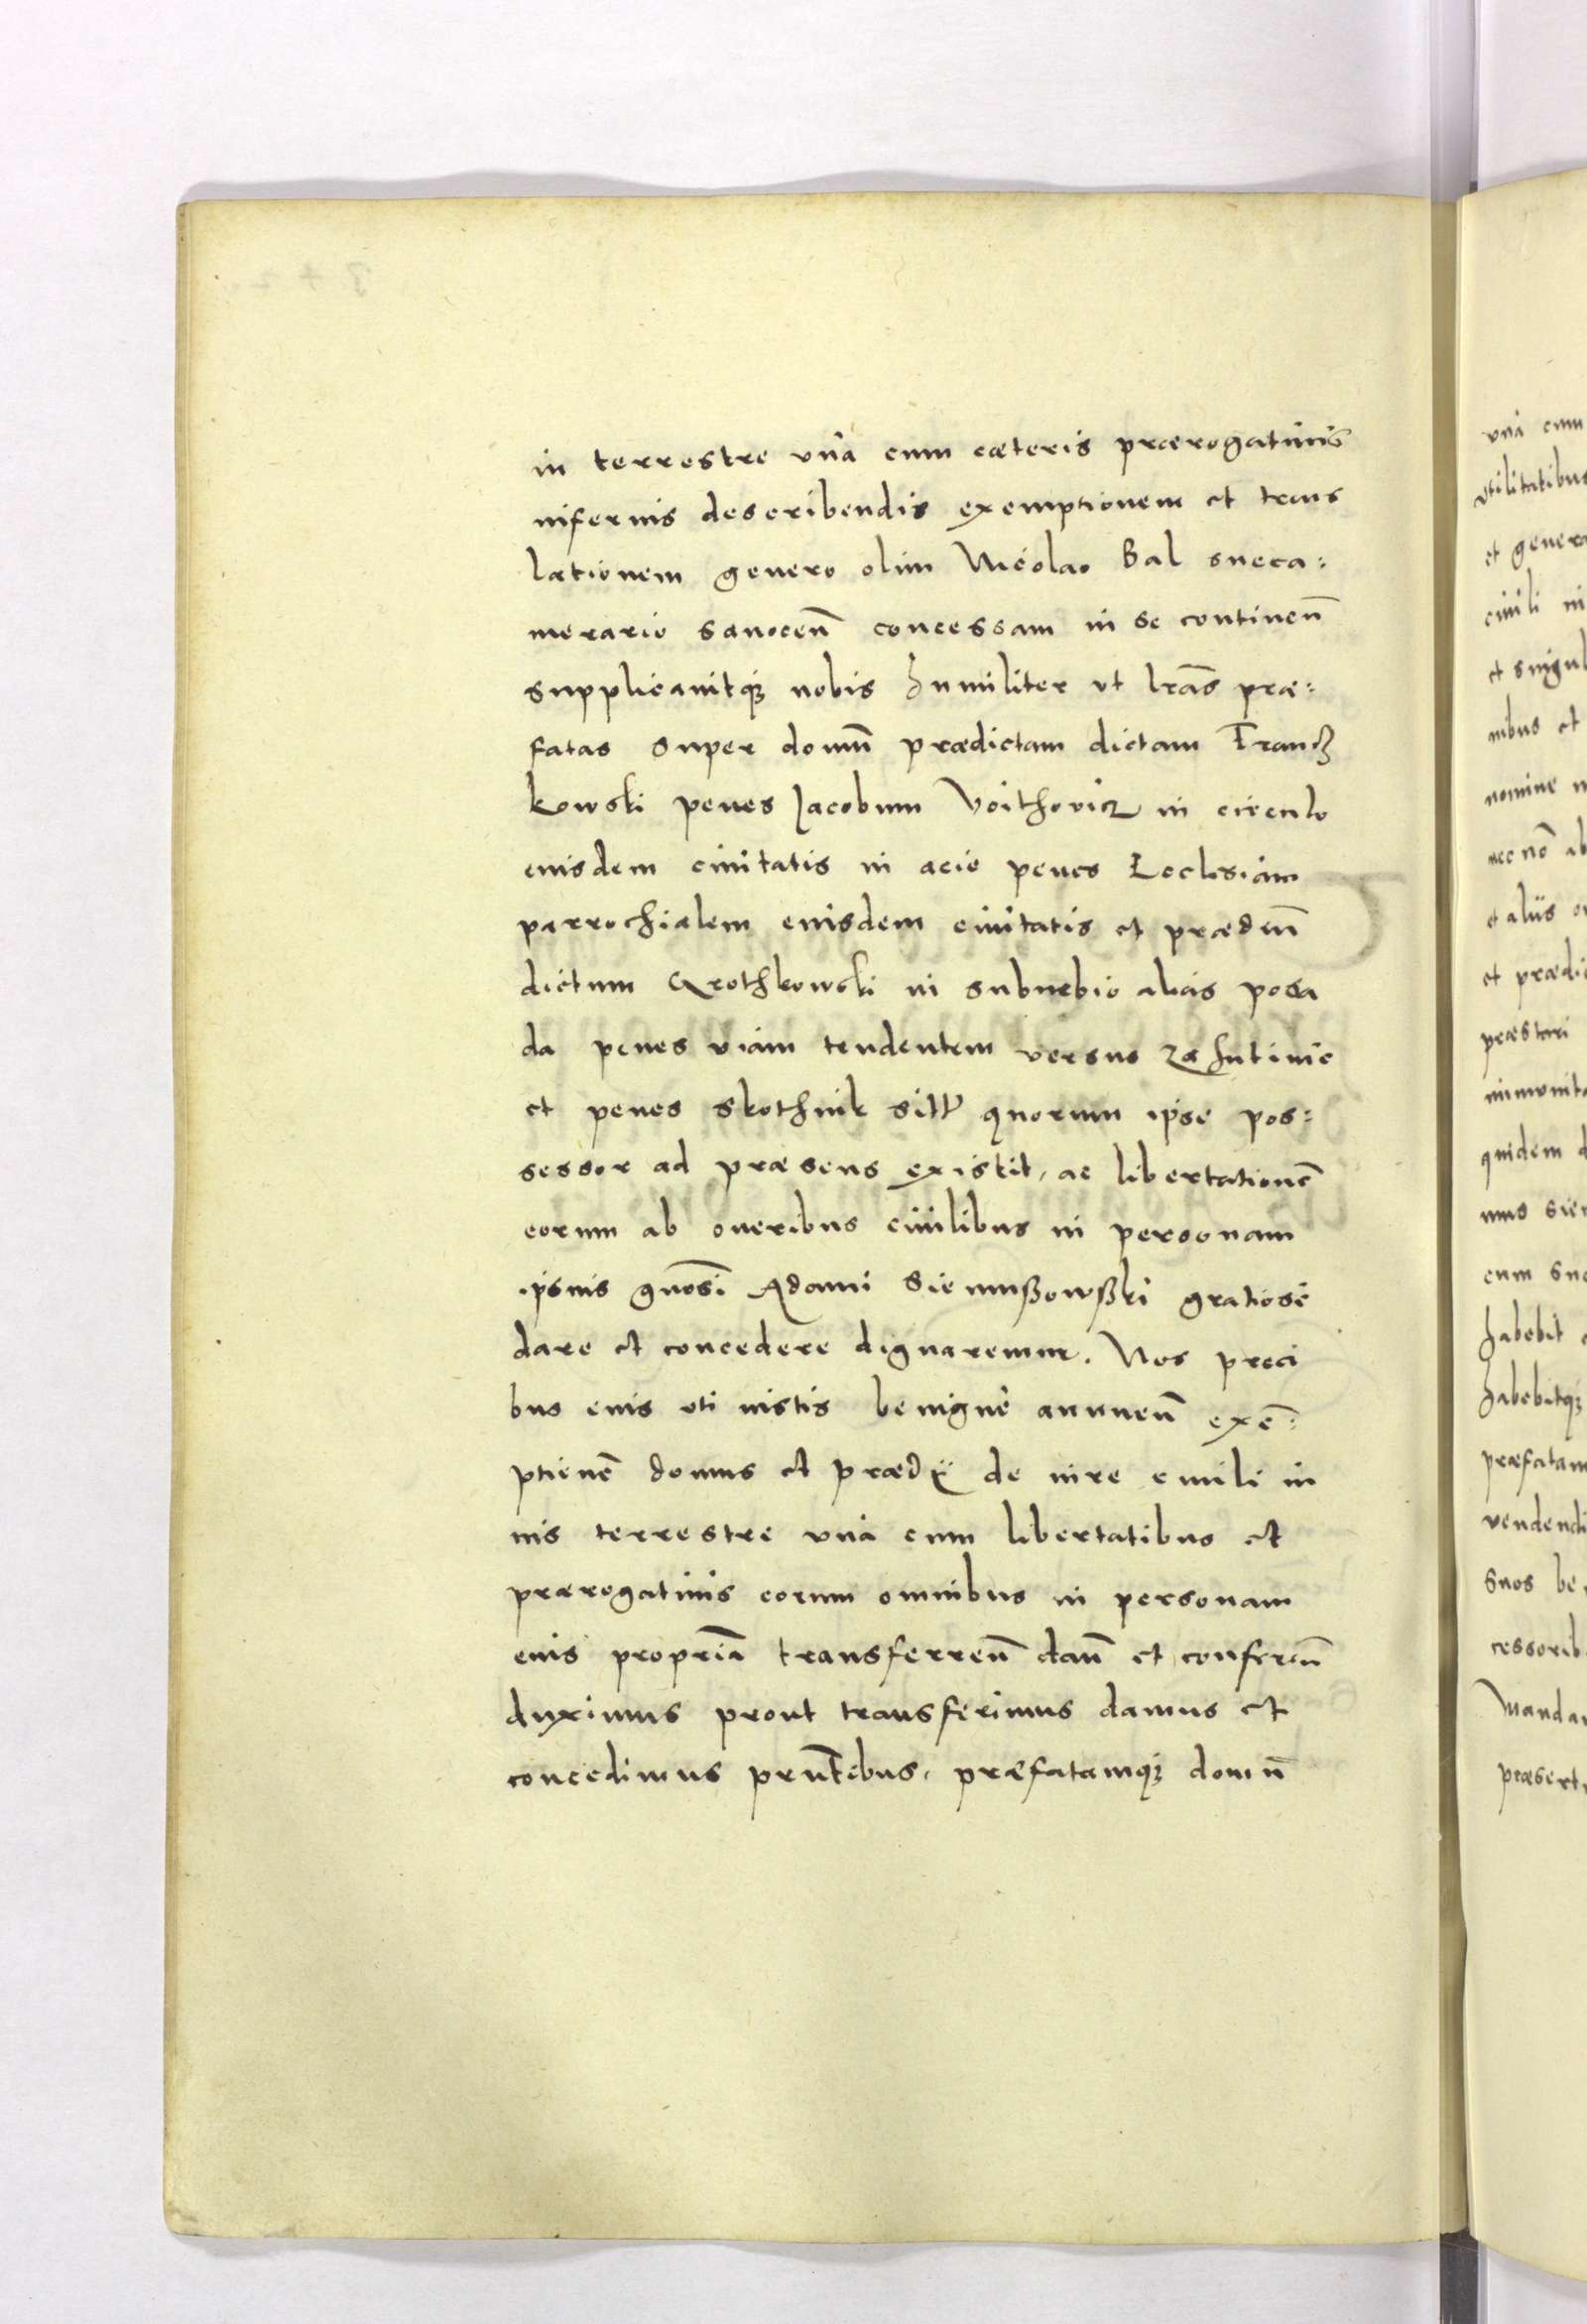 in terrestre vnà cum cæteris prærogatiuis
inferius describendis exemptionem et trans
lationem genero olim Nicolao Bal succa:
merario sanoceñ concessam in se continen̄
supplicauitq₃ nobis humiliter vt lr̄as præ:
fatas super domū prædictam dictam Francz
kowski penes Jacobum Voithovicz in circulo
eiusdem ciuitatis in acie penes Ecclesiam
parrochialem eiusdem ciuitatis et prædiū
dictum Grothkowski in suburbio aliàs posa
da penes viam tendentem versus Zahutinie
et penes skothnik sitt̄ quorum ipse pos:
sessor ad præsens existit, ac libertationē
eorum ab oneribus ciuilibus in personam
ipsius gn̄osi Adami Siemußowßki gratiosè
dare et concedere dignaremur. Nos preci
bus eius vti iustis benignè annuen̄ exē:
ptionē domus et prædij de iure ciuili in
ius terrestre vnà cum libertatibus et
prærogatiuis eorum omnibus in personam
eius propriā transferren̄ dan̄ et conferen̄
duximus prout transferimus damus et
concedimus prn̄tibus, præfatamq₃ domū
vnà cum
vtilitatibus
et genera
ciuili in
et singul
nibus et
nomine
nec nō ab
et alijs
et prædi
præstari
immunita
quidem
mus
cum
habebit
habebitq₃
præfatam
vendendi
suos be
cessorib
Mandan
præsert